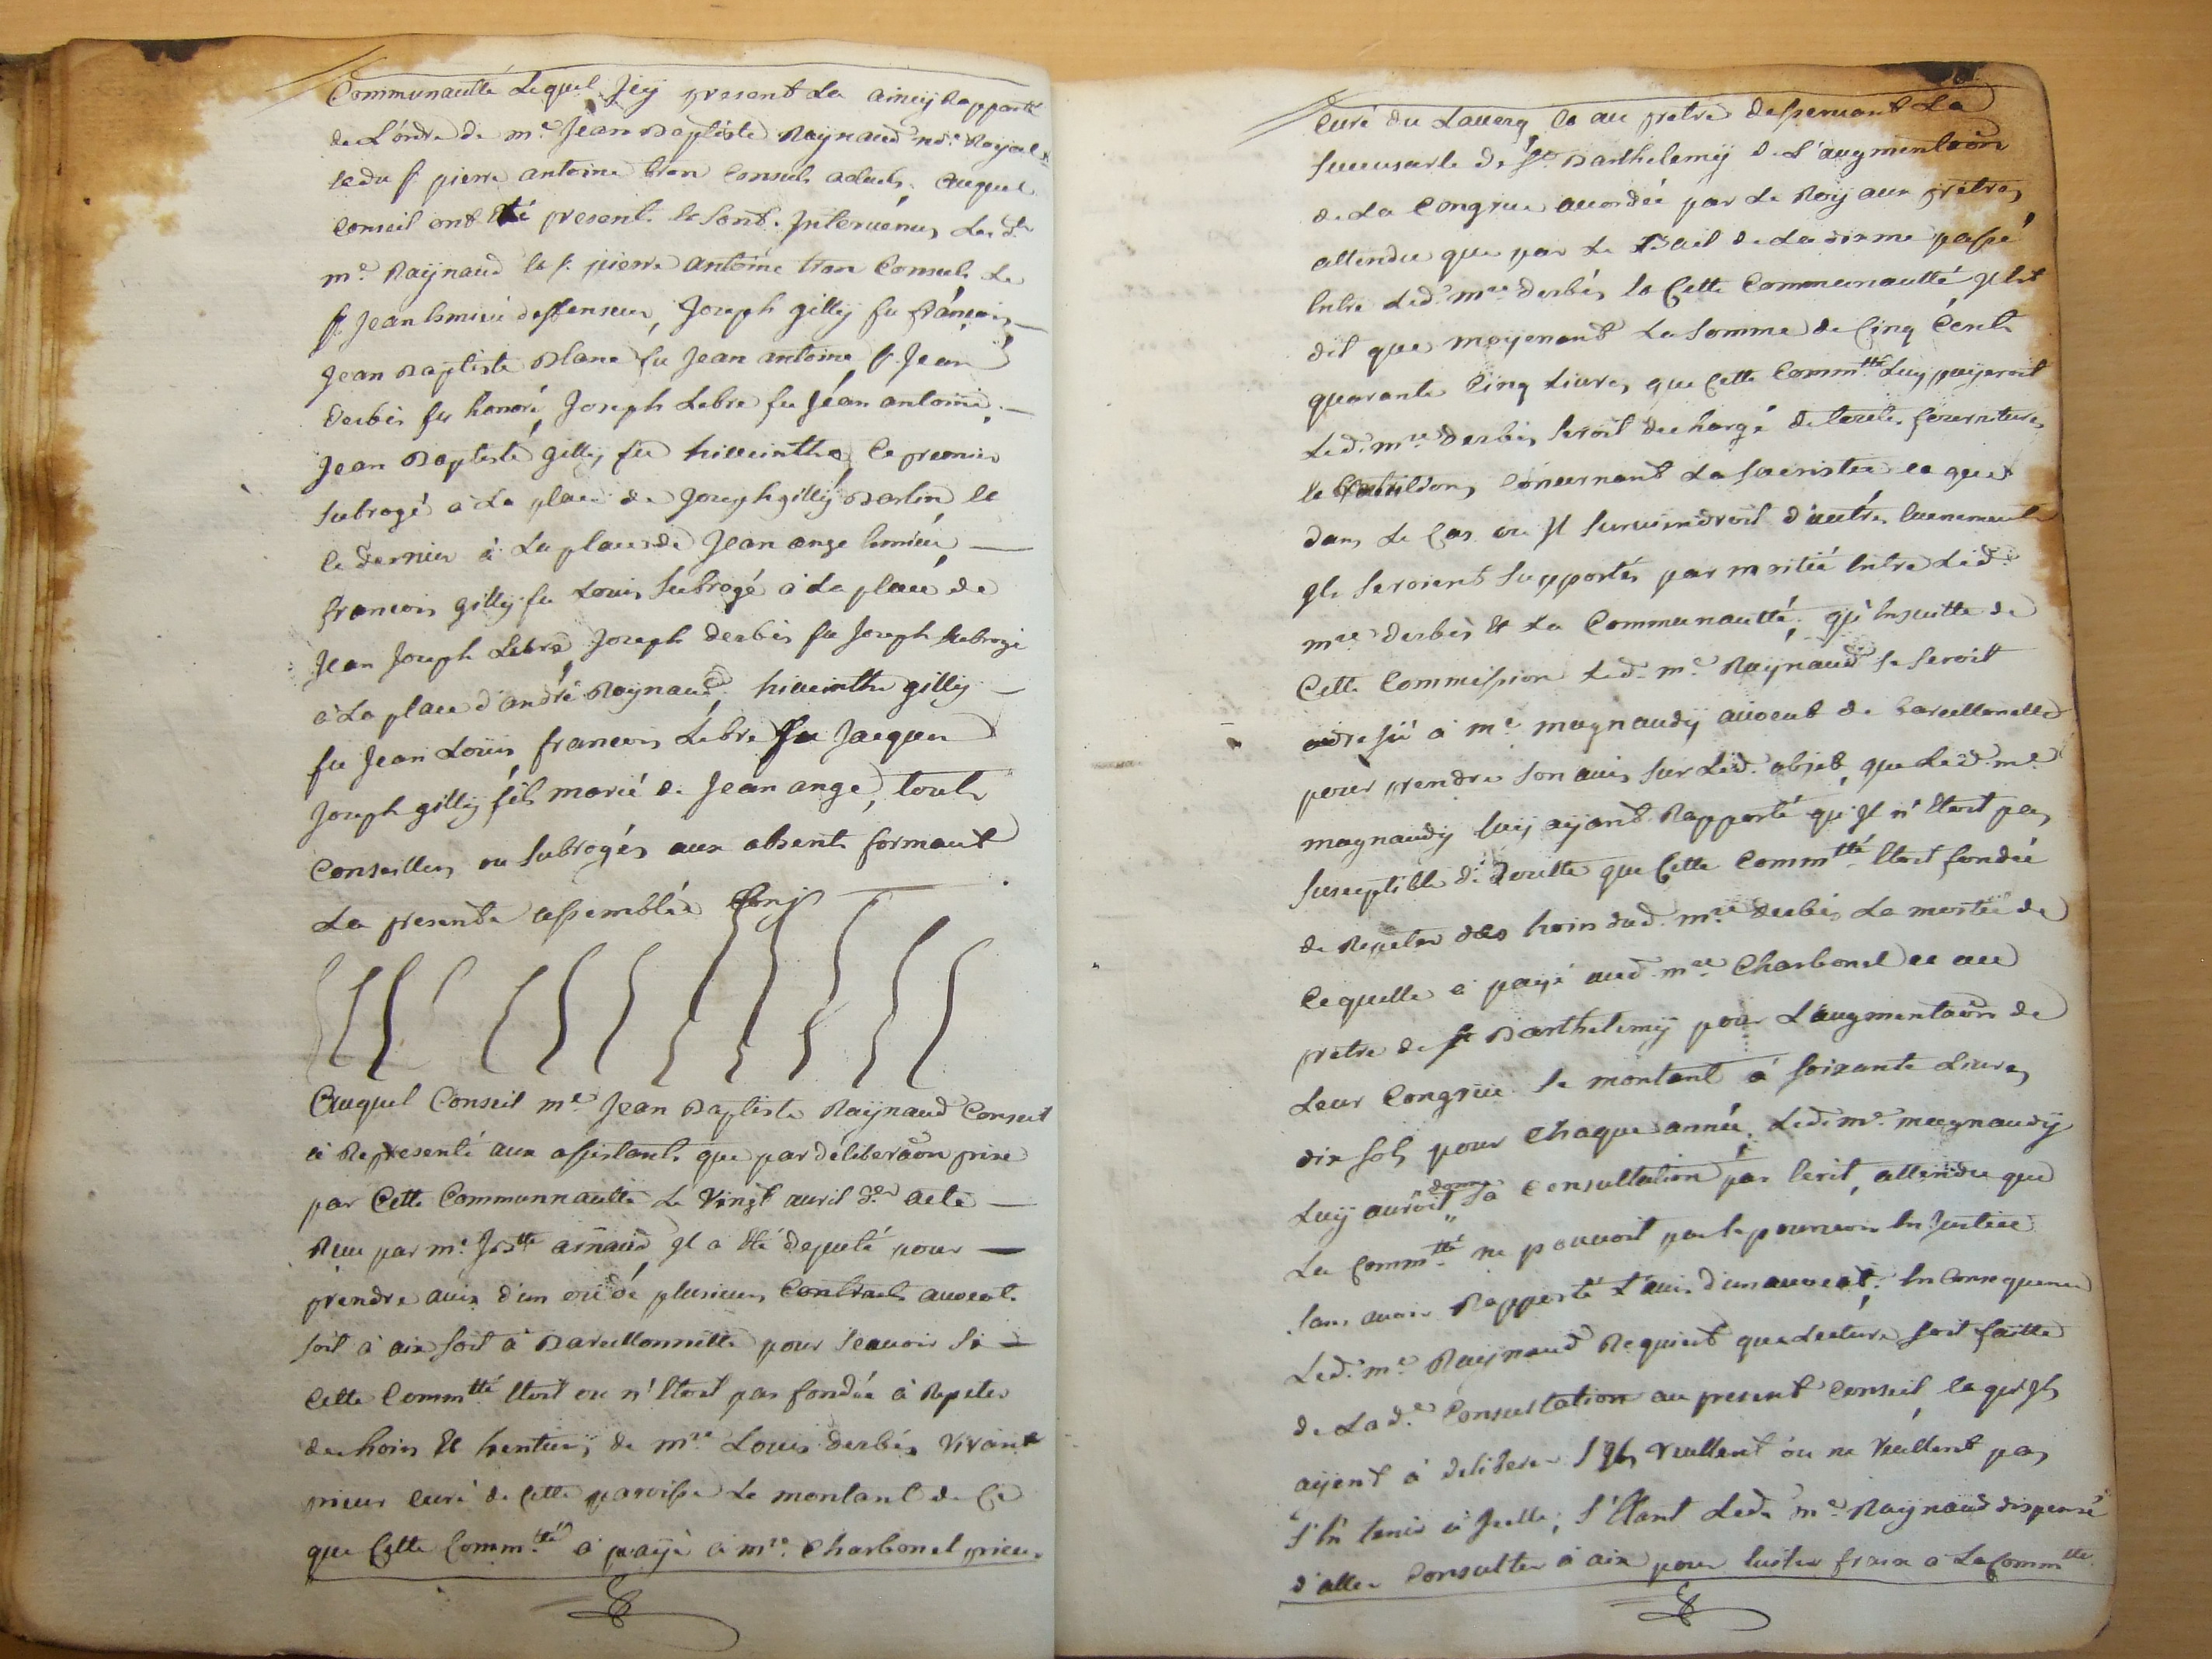 Communautté Lequel Jcy present La ainsy Rapporté
de L'ordre de me Jean Baptiste Raynaud no.re Royal
et du s.r pierre antoine tron Consuls actuels, auquel
Conseil ont été present et sont Intervenus Led.
m.e Raÿnaud et s.r pierre antoine tron Consuls Le
s.r Jean deffenseur, Joseph gillÿ fu françois
Jean Baptiste Blanc fu Jean antoine s.r Jean
derbés fu honoré, Joseph Lebre fu Jean antoine,
Jean Baptiste gilly fu hiacinthe, le premier
subrogé à La place de Joseph gillÿ et
le dernier à La place de Jean ange
francois gillÿ fu Louis subrogé à La place de
Jean Joseph Lebre, Joseph derbés fu Joseph subrogé
à La place d'andré Raynaud, hiacinthe gilly
fu Jean Loüis, francois Lebre fu Jacques
Joseph gillÿ fils marié de Jean ange, touts
Conseillers ou subrogés aux absents formant
La presente assemblée
Auquel Conseil m.e Jean Baptiste Raÿnaud Consul
à Representé aux assistants que par déliberaôn prise
par Cette Communnautté Le Vingt avril d.er acte
Reçu par m.e arnaud Jl a été deputé pour
prendre avis d'un ou de plusieurs avocats
soit à aix soit à Barcellonnette pour scavoir si
Cette Comm.tté Etoit ou n'Etoit pas fondée à Repeter
des hoirs Et de m.re Louis derbés Vivant
prieur curé de Cette paroisse Le montant de Ce
que Cette Comm.tté à paÿé à m.re Charbonel prieur
curé du Lauerq et au pretre desservant La
succursale de St Barthelemÿ de L'augmentaôn
de La Congrue accordée par Le Roÿ aux prêtres
attendu que par Le Bail de La dixme passé
Entre Led. m.re derbés et Cette Communautté Jl Est
dit que moÿenant La somme de Cinq Cents
quarante Cinq Livres que Cette Comm.tté Luy payeroit
Led. m.re derbés seroit dechargé de toutes fournitures
et concernant La sacristie et que
dans Le Cas ou Jl surviendroit d'autres Evenements
Jls seroient supportés par moitié Entre Led.
m.re derbés Et La Communautté, qu'Ensuitte de
Cette Commission Led. m.e Raÿnaud se seroit
adressé à m.e magnaudÿ avocat de barcellonette
pour prendre son avis sur Led. objet, que Led. m.e
magnaudÿ Luy aÿant Rapporté qu'Jl n'Etoit pas
susceptible de doutte que Cette Comm.tté Etoit fondée
de Repeter des hoirs dud. m.re derbés La moitié de
Ce quelle a payé aud. m.re Charbonel et au
pretre de st Barthelemÿ pour L'augmentaôn de
Leur Congrue se montant à soixante Livres
dix sols pour Chaque année, Led. m.e magnaudÿ
Luÿ auroit donné sa Consultation par Ecrit, attendu que
La Comm.tté ne pouvoit pas se pourvoir En Justice
sans avoir Rapporté L'avis d'un avocat, En Consequence
Led. m.e Raÿnaud Requiert que Lecture soit faitte
de Lad.e Consultation au present Conseil, et qu'Jls
ayent à deliberer s'Jls veullent ou ne veullent pas
s'En tenir à Jcelle, s'Etant Led. m.e Raÿnaud dispensé
d'aller Consulter à aix pour Eviter fraix a La Comm.tté